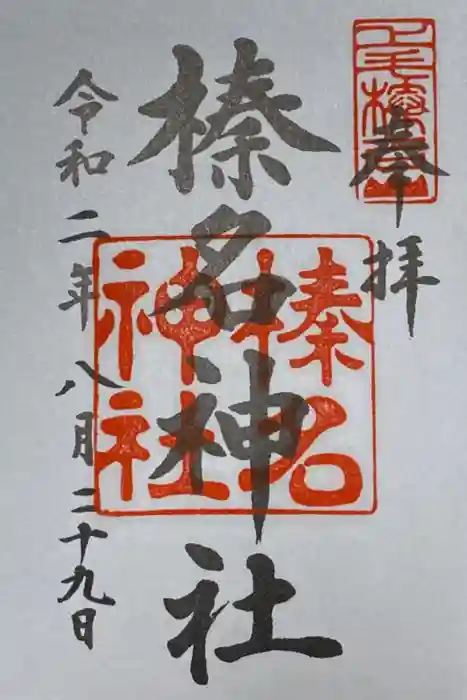 奉拝
榛名神社
榛名
神社
令和二年八月二十九日